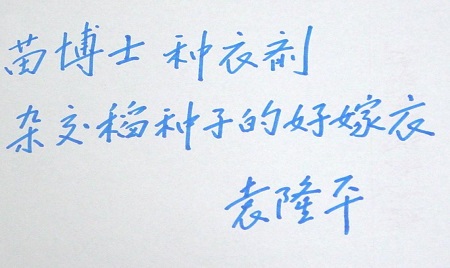 苗博士 种衣剂
杂交稻种子的好嫁衣
袁隆平